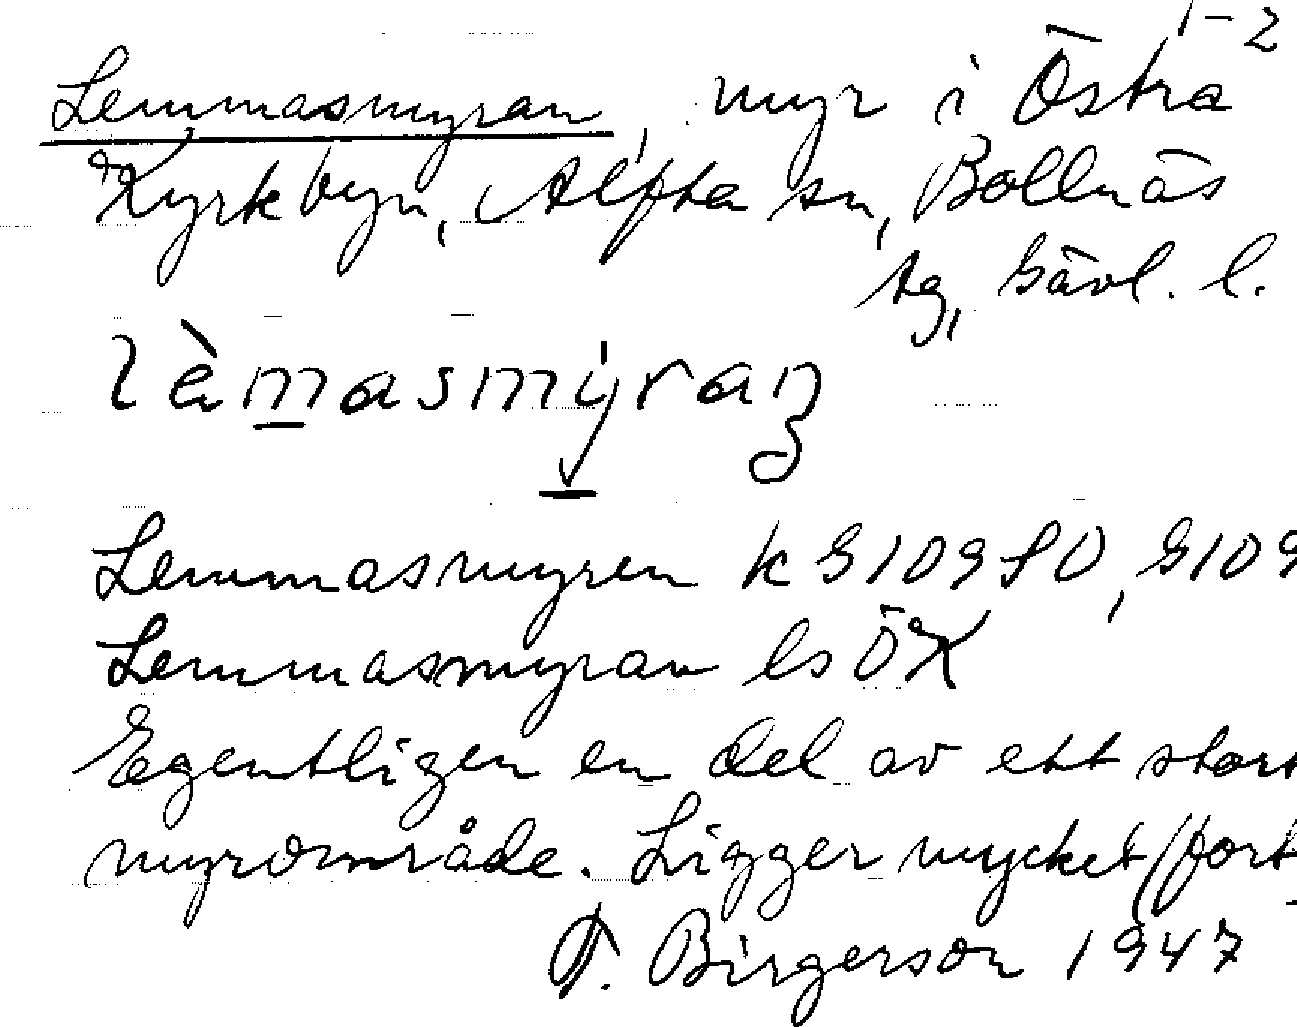 1-2
Lemmasmyran, myr i Östra
Kyrkbyn, Alfta sn, Bollnäs
tg, Gävl. l.
lèmasmyraɳ
Lemmasmyren k G109SO, G109
Lemmasmyran ls ÖK
Egentligen en del av ett stort
myrområde. Ligger mycket (fort
F. Birgerson 1947